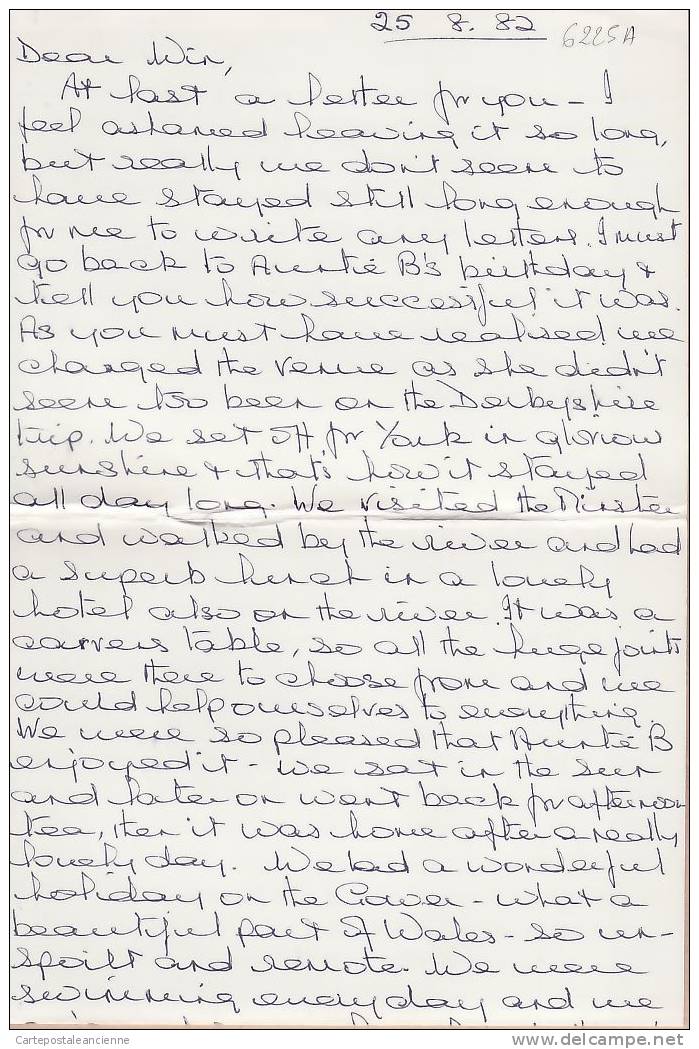 25 8. 82
6225A
Dear Win,
At last a letter for you - I
feel ashamed leaving it so long,
but really we don't seem to
have stayed still long enough
for me to write any letters. I must
go back to Auntie B's birthday &
tell you how successful it was.
As you must have realised we
changed the venue as she didn't
seem too keen on the Derbyshire
trip. We set off for York in glorious
sunshine & that's how it stayed
all day long. We visited the Minster
and walked by the river and had
a superb lunch in a lovely
hotel also on the river. It was a
carvers table, so all the huge joints
were there to choose from and we
could help ourselves to everything.
We were so pleased that Auntie B
enjoyed it - we sat in the sun
and later on went back for afternoon
tea, then it was home after a really
lovely day. We had a wonderful
holiday on the Gower - what a
beautiful part of Wales - so un-
spoilt and remote. We were
swimming every day and we
Cartepostaleancienne
www.delcampe.net